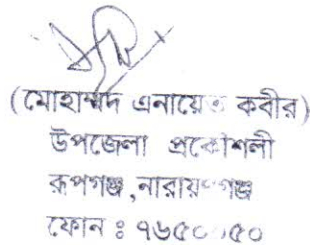 (মোহাম্মদ এনায়েত কবীর)
উপজেলা প্রকৌশলী
রূপগঞ্জ,নারায়ণগঞ্জ
ফোন ঃ